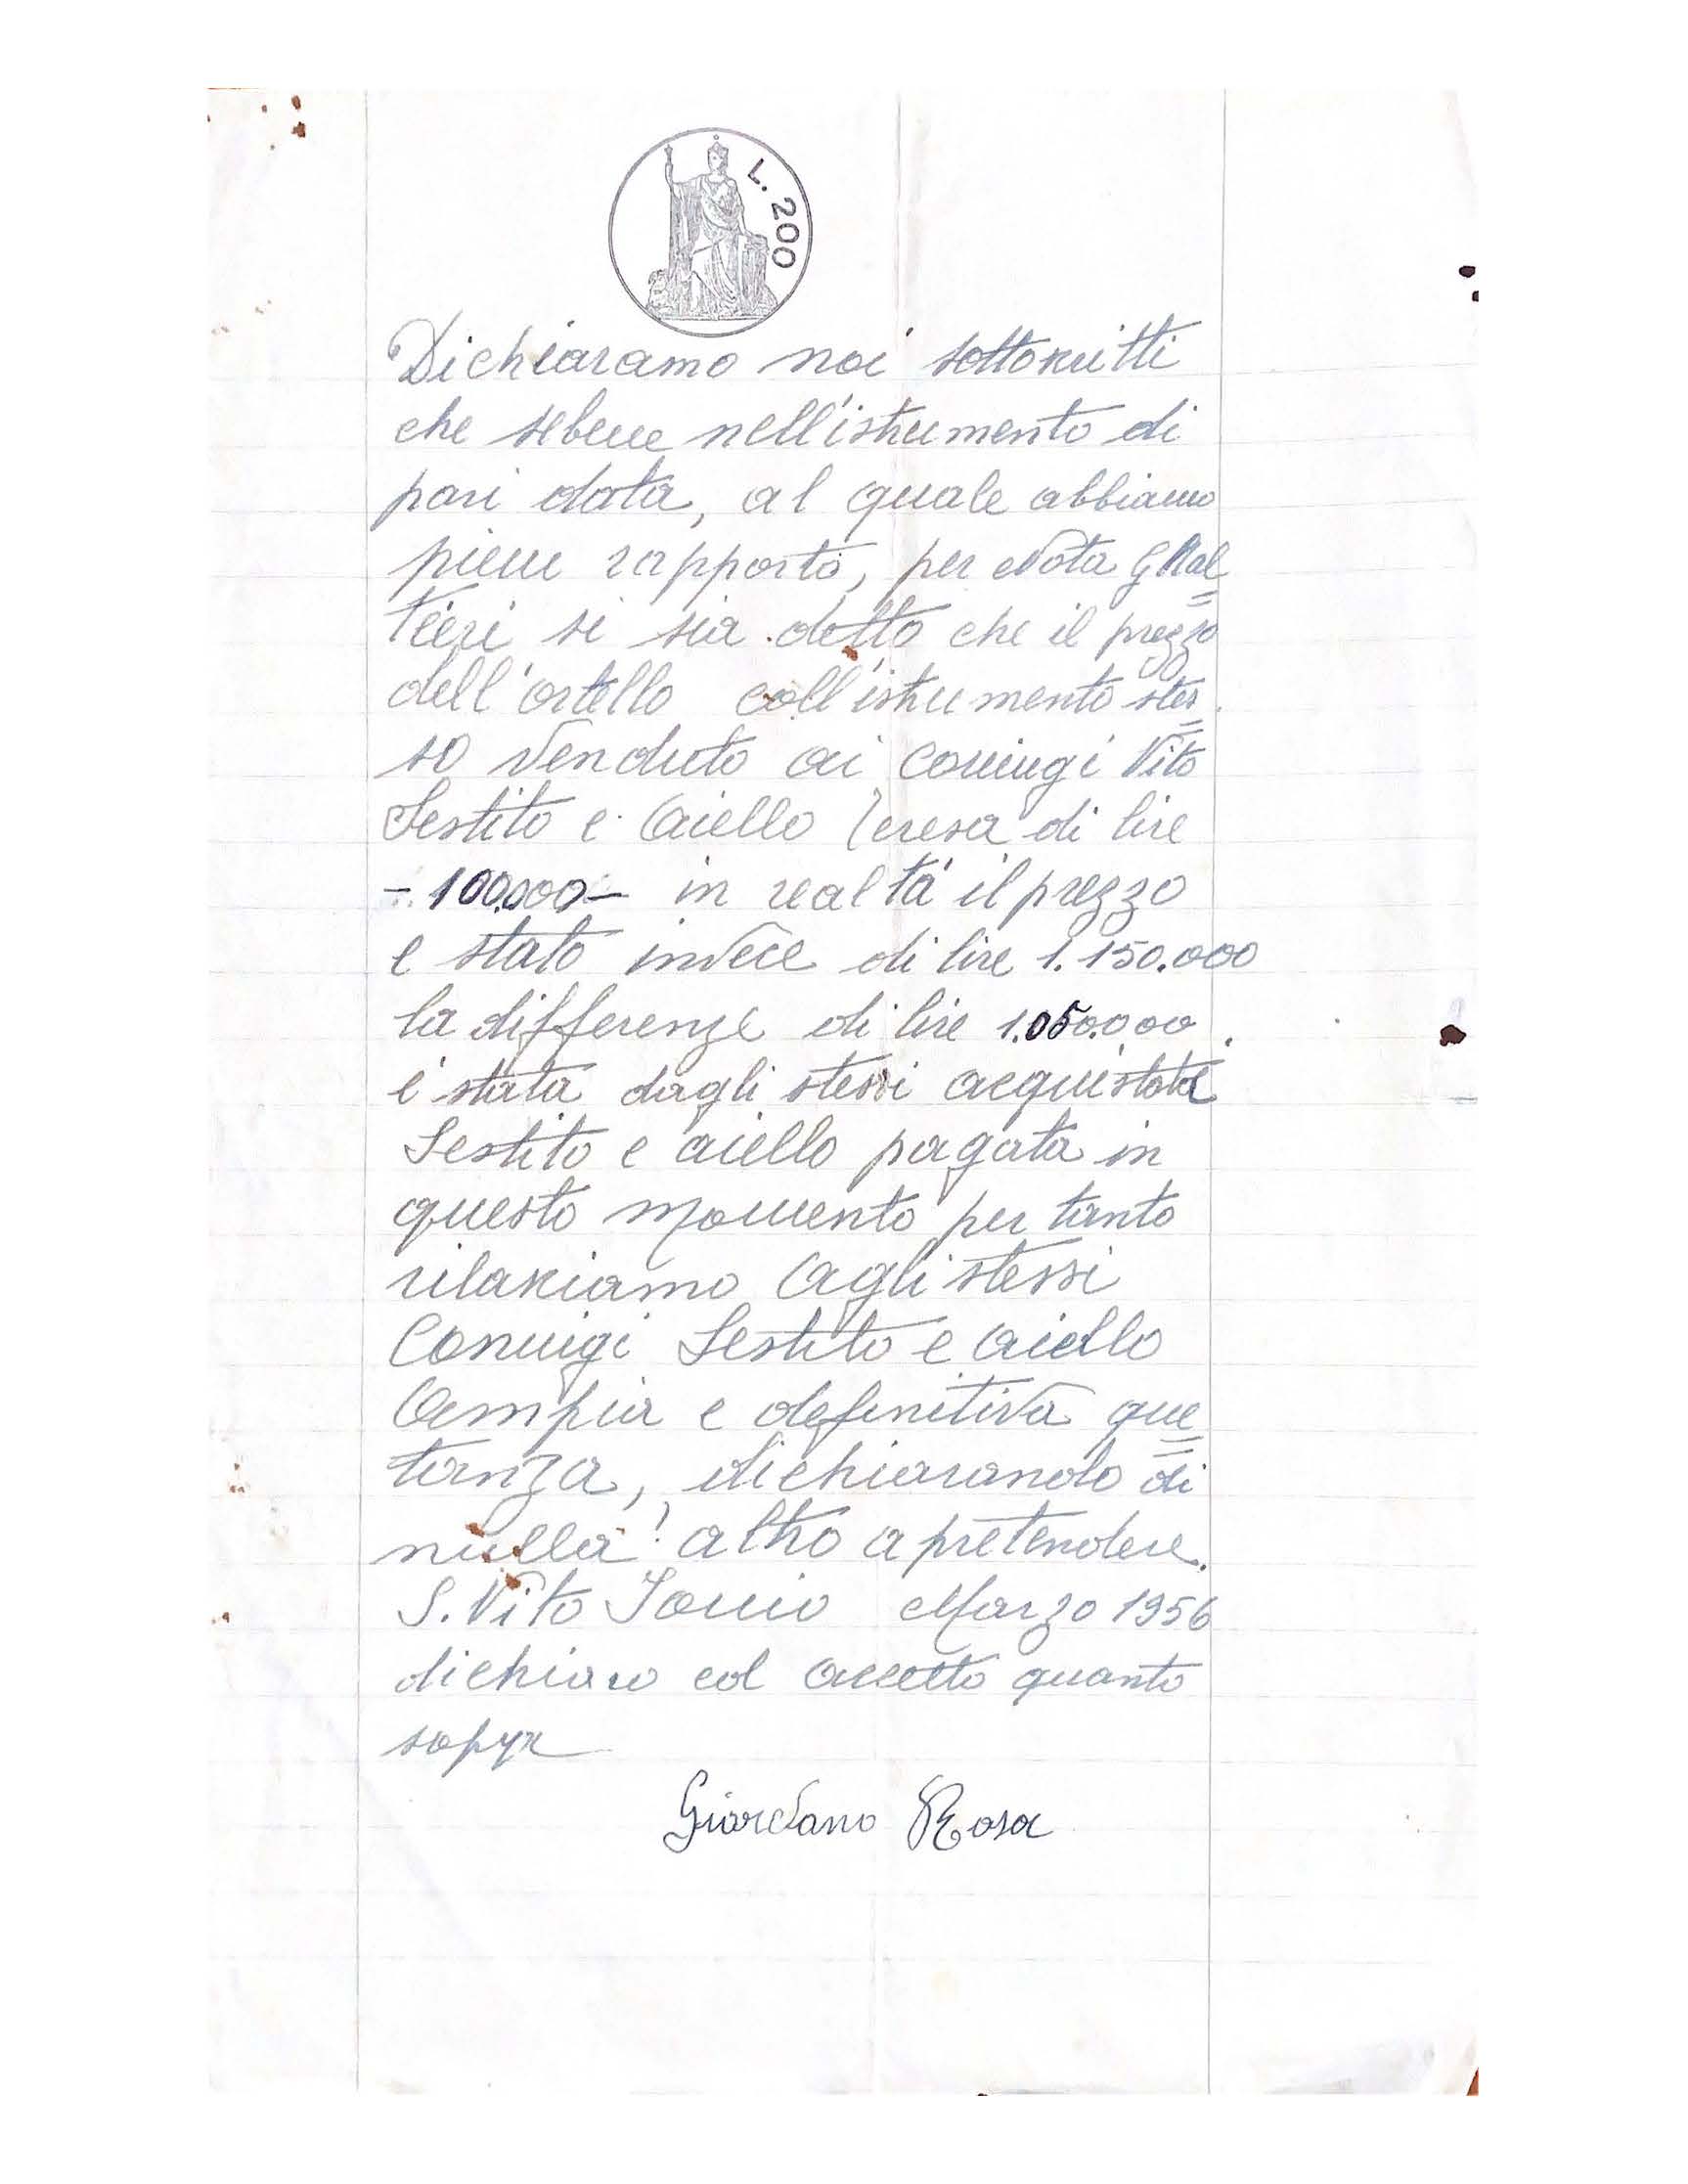 L. 200
Dichiaramo noi sottoscritti
che sebene nell'istrumento di
pari data, al quale abbiamo
pieno rapporto, per Nota Gual=
tieri si sia detto che il prezzo
dell'ortello coll'istrumento stes=
so venduto ai coniugi Vito
Sestito e Aiello Teresa di lire
-100.000- in realtá il prezzo
e stato invece di lire 1.150.000
la differenze di lire 1.050.000
é stata dagli stessi
Sestito e aiello pagata in
questo momento per tanto
rilasciamo agli stessi
Coniugi Sestito e Aiello
Ampia e definitiva que=
tanza, dichiarando di
nulla altro a pretendere.
S. Vito Jonio Marzo 1956
dichiaro ed accetto quanto
sopra
Giordano Rosa